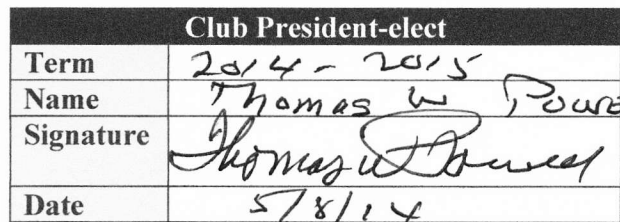 Club President-elect
Term 2014 - 2015
Name Thomas W Powe
Signature Thomas W Powell
Date 5/8/14